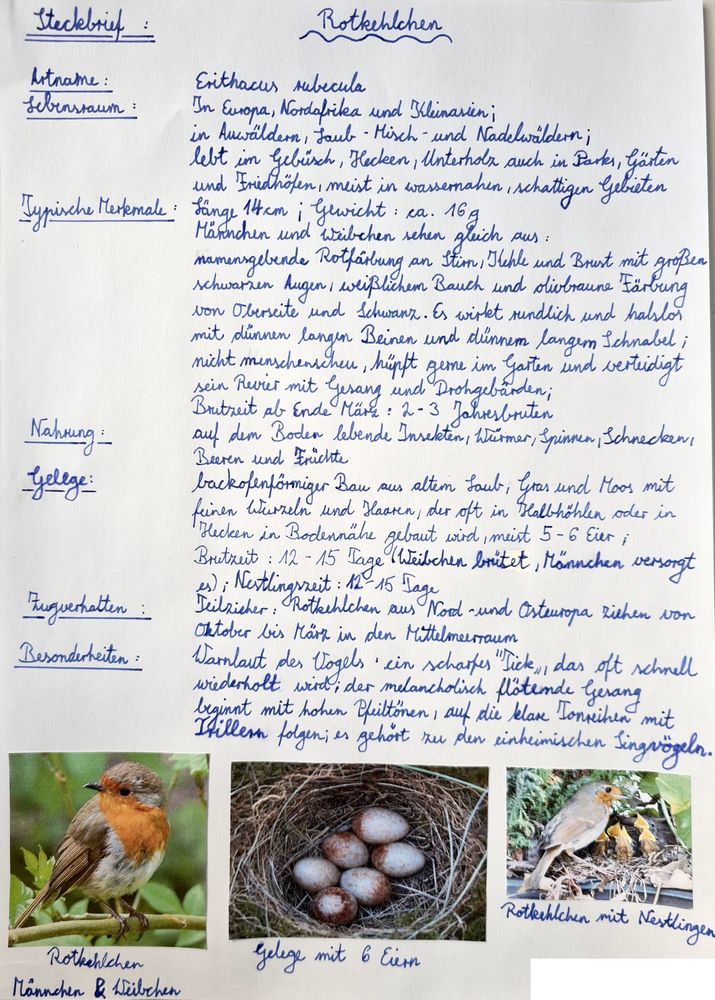 Steckbrief : Rotkehlchen
Artname : Erithacus rubecula
Lebensraum : In Europa, Nordafrika und Kleinasien;
in Auwäldern, Laub - Misch - und Nadelwäldern;
lebt im Gebüsch, Hecken, Unterholz auch in Parks, Gärten
und Friedhöfen, meist in wassernahen, schattigen Gebieten
Typische Merkmale : Länge 14cm ; Gewicht : ca. 16g
Männchen und Weibchen sehen gleich aus :
namensgebende Rotfärbung an Stirn, Kehle und Brust mit großen
schwarzen Augen, weißlichem Bauch und olivbraune Färbung
von Oberseite und Schwanz. Es wirkt rundlich und halslos
mit dünnen langen Beinen und dünnem langem Schnabel ;
nicht menschenscheu, hüpft gerne im Garten und verteidigt
sein Revier mit Gesang und Drohgebärden;
Brutzeit ab Ende März : 2 - 3 Jahresbruten
Nahrung : auf dem Boden lebende Insekten, Würmer, Spinnen, Schnecken,
Beeren und Früchte
Gelege : backofenförmiger Bau aus altem Laub, Gras und Moos mit
feinen Wurzeln und Haaren, der oft in Halbhöhlen oder in
Hecken in Bodennähe gebaut wird, meist 5 - 6 Eier ;
Brutzeit : 12 - 15 Tage (Weibchen brütet, Männchen versorgt
es) ; Nestlingszeit : 12 - 15 Tage
Zugverhalten : Teilzieher : Rotkehlchen aus Nord - und Osteuropa ziehen von
Oktober bis März in den Mittelmeerraum
Besonderheiten : Warnlaut des Vogels : ein scharfes "Tick", das oft schnell
wiederholt wird ; der melancholisch flötende Gesang
beginnt mit hohen Pfeiltönen, auf die klare Tonreihen mit
Trillern folgen; es gehört zu den einheimischen Singvögeln.
Rotkehlchen
Männchen & Weibchen
Gelege mit 6 Eiern
Rotkehlchen mit Nestlingen